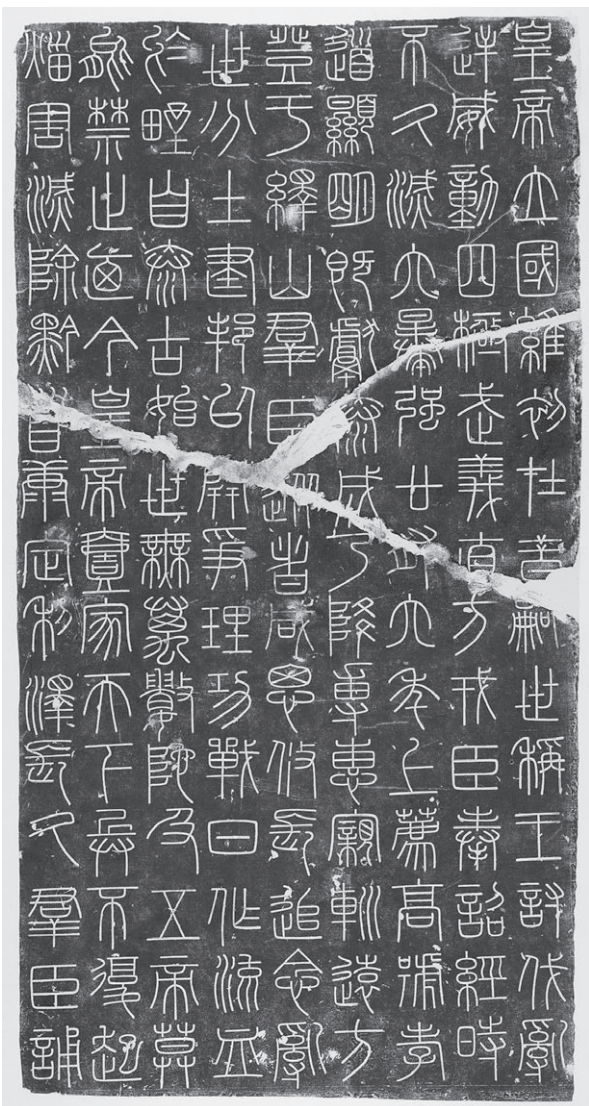 皇帝立國維初在昔嗣世稱王討伐亂
逆威動四極武義直方戎臣奉詔經時
不久滅六暴強廿有六年上薦高號孝
道顯明既獻泰成乃降專惠寴軓遠方
登于繹山羣臣從者咸思攸長追念亂
世分土建邦以開爭理功戰日作流血
於野自泰古始世無萬數陀及五帝莫
能禁止迺今皇帝壹家天下兵不復起
災害滅除黔首康定利澤長久羣臣誦